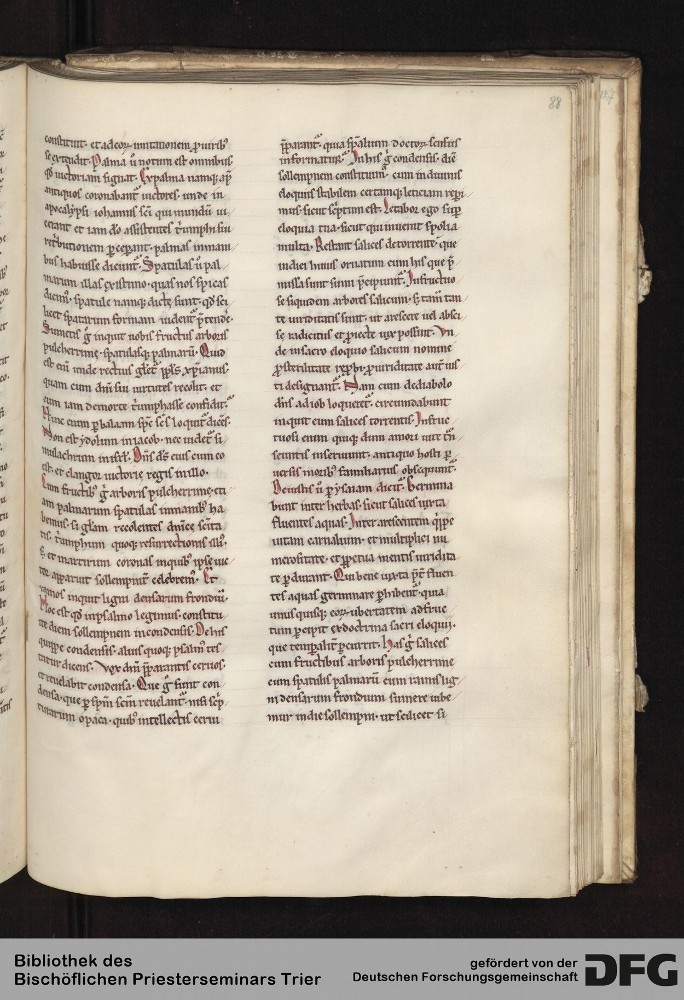 88
constituit· et ad eoꝝ imitationem ꝓ uirib᷒
se extendit· Palma ū notum est omnibus
qd̄ uictoriam signat· Ex palma namq; ap̄
antiquos coronabant᷑ uictores· unde in
apocalypsi iohannis sc̄i qui mundū ui
cerant et iam dō assistentes t͛umphi sui
ret͛butionem ꝑceperant· palmas in mani
bus habuisse dicunt᷑· Spatulas ū pal
marum illas existimo· quas nos spicas
dicim᷒· spatule namq; dicte sunt· qd̄ sci
licet spatarum formam uident᷑ p̄tende͛·
Sumetis g̊ inquit nobis fructus arboris
pulcherrime· spatulasq; palmarū· Quid
est eni̅ unde rectius gl̅iet᷑ ppl̅s xp̅ianus·
quam cum dn̅i sui uirtutes recolit· et
eum iam de morte t͛umphasse confidit·
Hinc enim ꝑ balaam sp̅c sc̅s loquit᷑ dicēs·
Non est ydolum in iacob· nec uidet᷑ si
mulachrum in isrl̅· Dn̅s ds̅ eius cum eo
est· et clangor uictorie regis in illo·
Cum fructib᷒ g̊ arboris pulcherrime· eti
am palmarum spatulas in manib᷒ ha
bemus· si gl̅am recolentes dn̅ice sc̅ita
tis· t͛umphum quoq; resurrectionis illi᷒·
S; et martirum coronas in quib᷒ ipse uic
tor apparuit sollempnit͛ celebrem᷒· Et
ramos inquit ligni densarum frondiū·
Hoc est qd̄ in psalmo legimus· constitu
ite diem sollempnem in condensis· De his
quippe condensis· alius quoq; psalm᷒ tes
tatur dicens· Vox dn̅i p̄parantis ceruos·
et reuelabit condensa· Que g̊ sunt con
densa· que ꝑ sp̅m sc̅m reuelant᷑· nisi sc͛p
turarum opaca· quib᷒ intellectis cerui
p̄parant᷑· quia sp̅alium doctoꝝ sensus
informatur· In his g̊ condensis· diē
sollempnem constituim᷒· cum in diuinis
eloquiis stabilem certamq; leticiam repi
mus· sicut sc͛ptum est· Letabor ego sup͛
eloquia tua· sicut qui inuenit spolia
multa· Restant salices de torrente· que
in diei huius ornatum cum his que p̄
missa sunt sumi p̄cipiunt᷑· Infructuo
se siquidem arbores salicum· s; tam̅ tan
te uiriditatis sunt· ut arescere uel absci
se radicitus et ꝓiecte uix possint· Vn
de in sacro eloquio salicum nomine
ꝓ sterilitate ꝓ uiriditate aut͛ ius
ti designant᷑· Nam cum de diabolo
dn̅s ad iob loqueret᷑· circumdabunt
inquit eum salices torrentis· Infruc
tuosi enim quiq; dum amori uite
inseruiunt· antiquo hosti ꝑ
uersis morib᷒ familiarius obsecunt᷑·
De iustis ū ꝑ ysaiam dicit᷑· Germina
bunt inter herbas· sicut salices iuxta
fluentes aquas· Inter arescentem q̅ppe
uitam carnalium· et multiplici nu
merositate· et ꝑpetua mentis uiridita
te ꝑdurant· Qui bene iuxta p̄t͛ fluen
tes aquas germinare ꝑhibent᷑· quia
unusquisq; eoꝝ ubertatem ad fruc
tum ꝑcipit ex doctrina sacri eloquii·
que temp̅alit͛ ꝑcurrit· Has g̊ salices
cum fructibus arboris pulcherrime
cum spatulis palmarū cum ramis lig
ni densarum frondium sumere iube
mur in die sollempni· ut scilicet si
Bibliothek des
Bischöflichen Priesterseminars Trier
gefördert von der
Deutschen Forschungsgemeinschaft
DFG